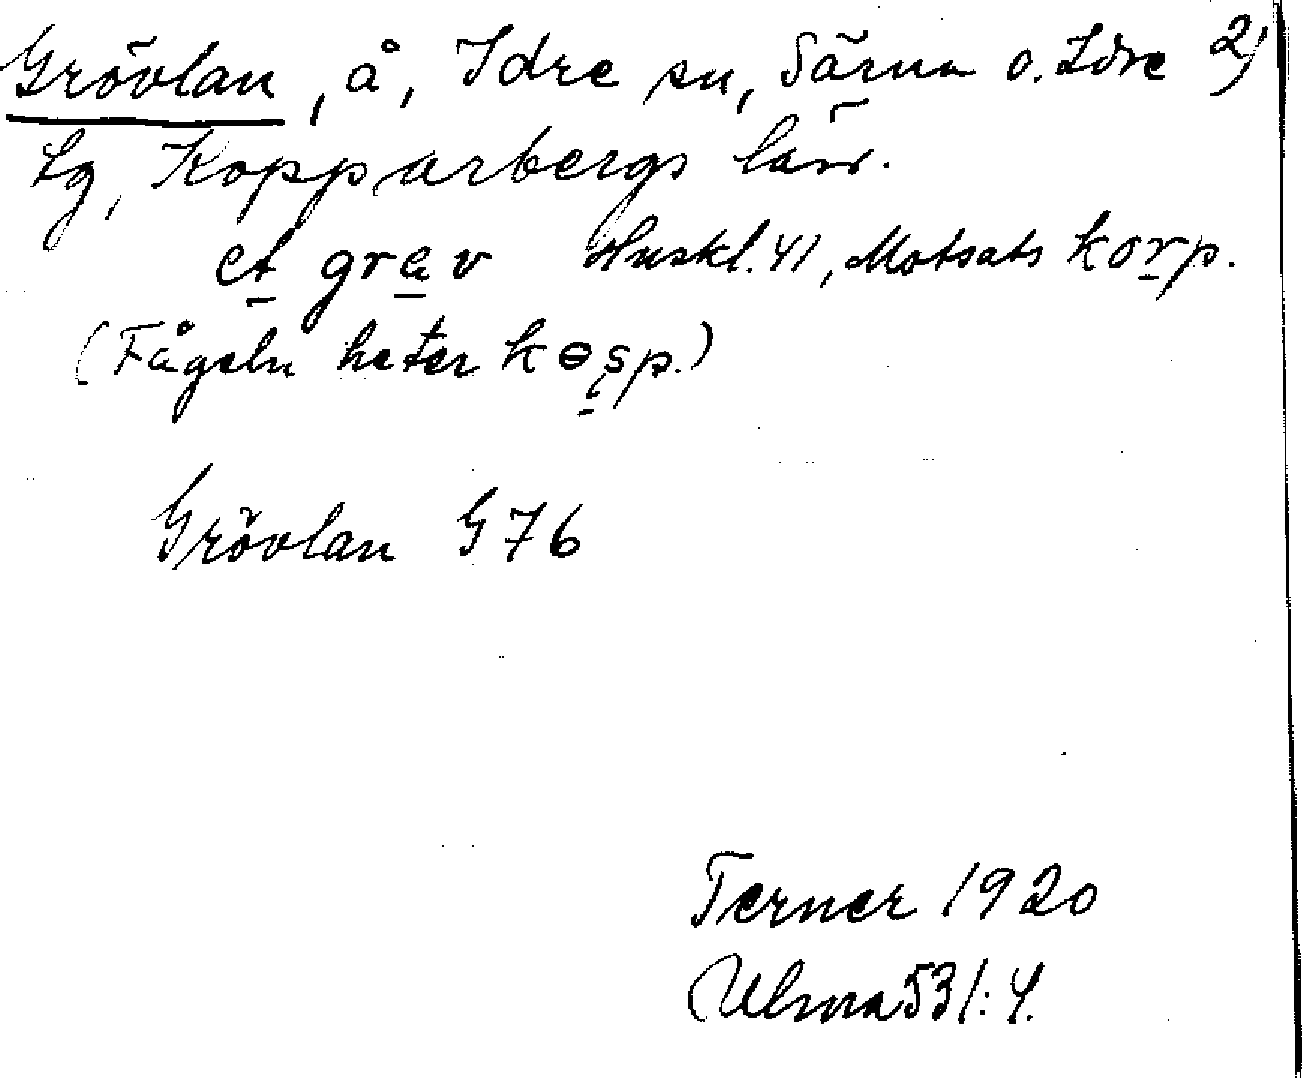 Grövlan, å, Idre sn, Särna o. Idre 2)
tg, Kopparbergs län.
et grav Huskl. 41, Motsats korp.
(Fågeln heter kosp.)
Grövlan G 76
Terner 1920
Ulma 531:4.